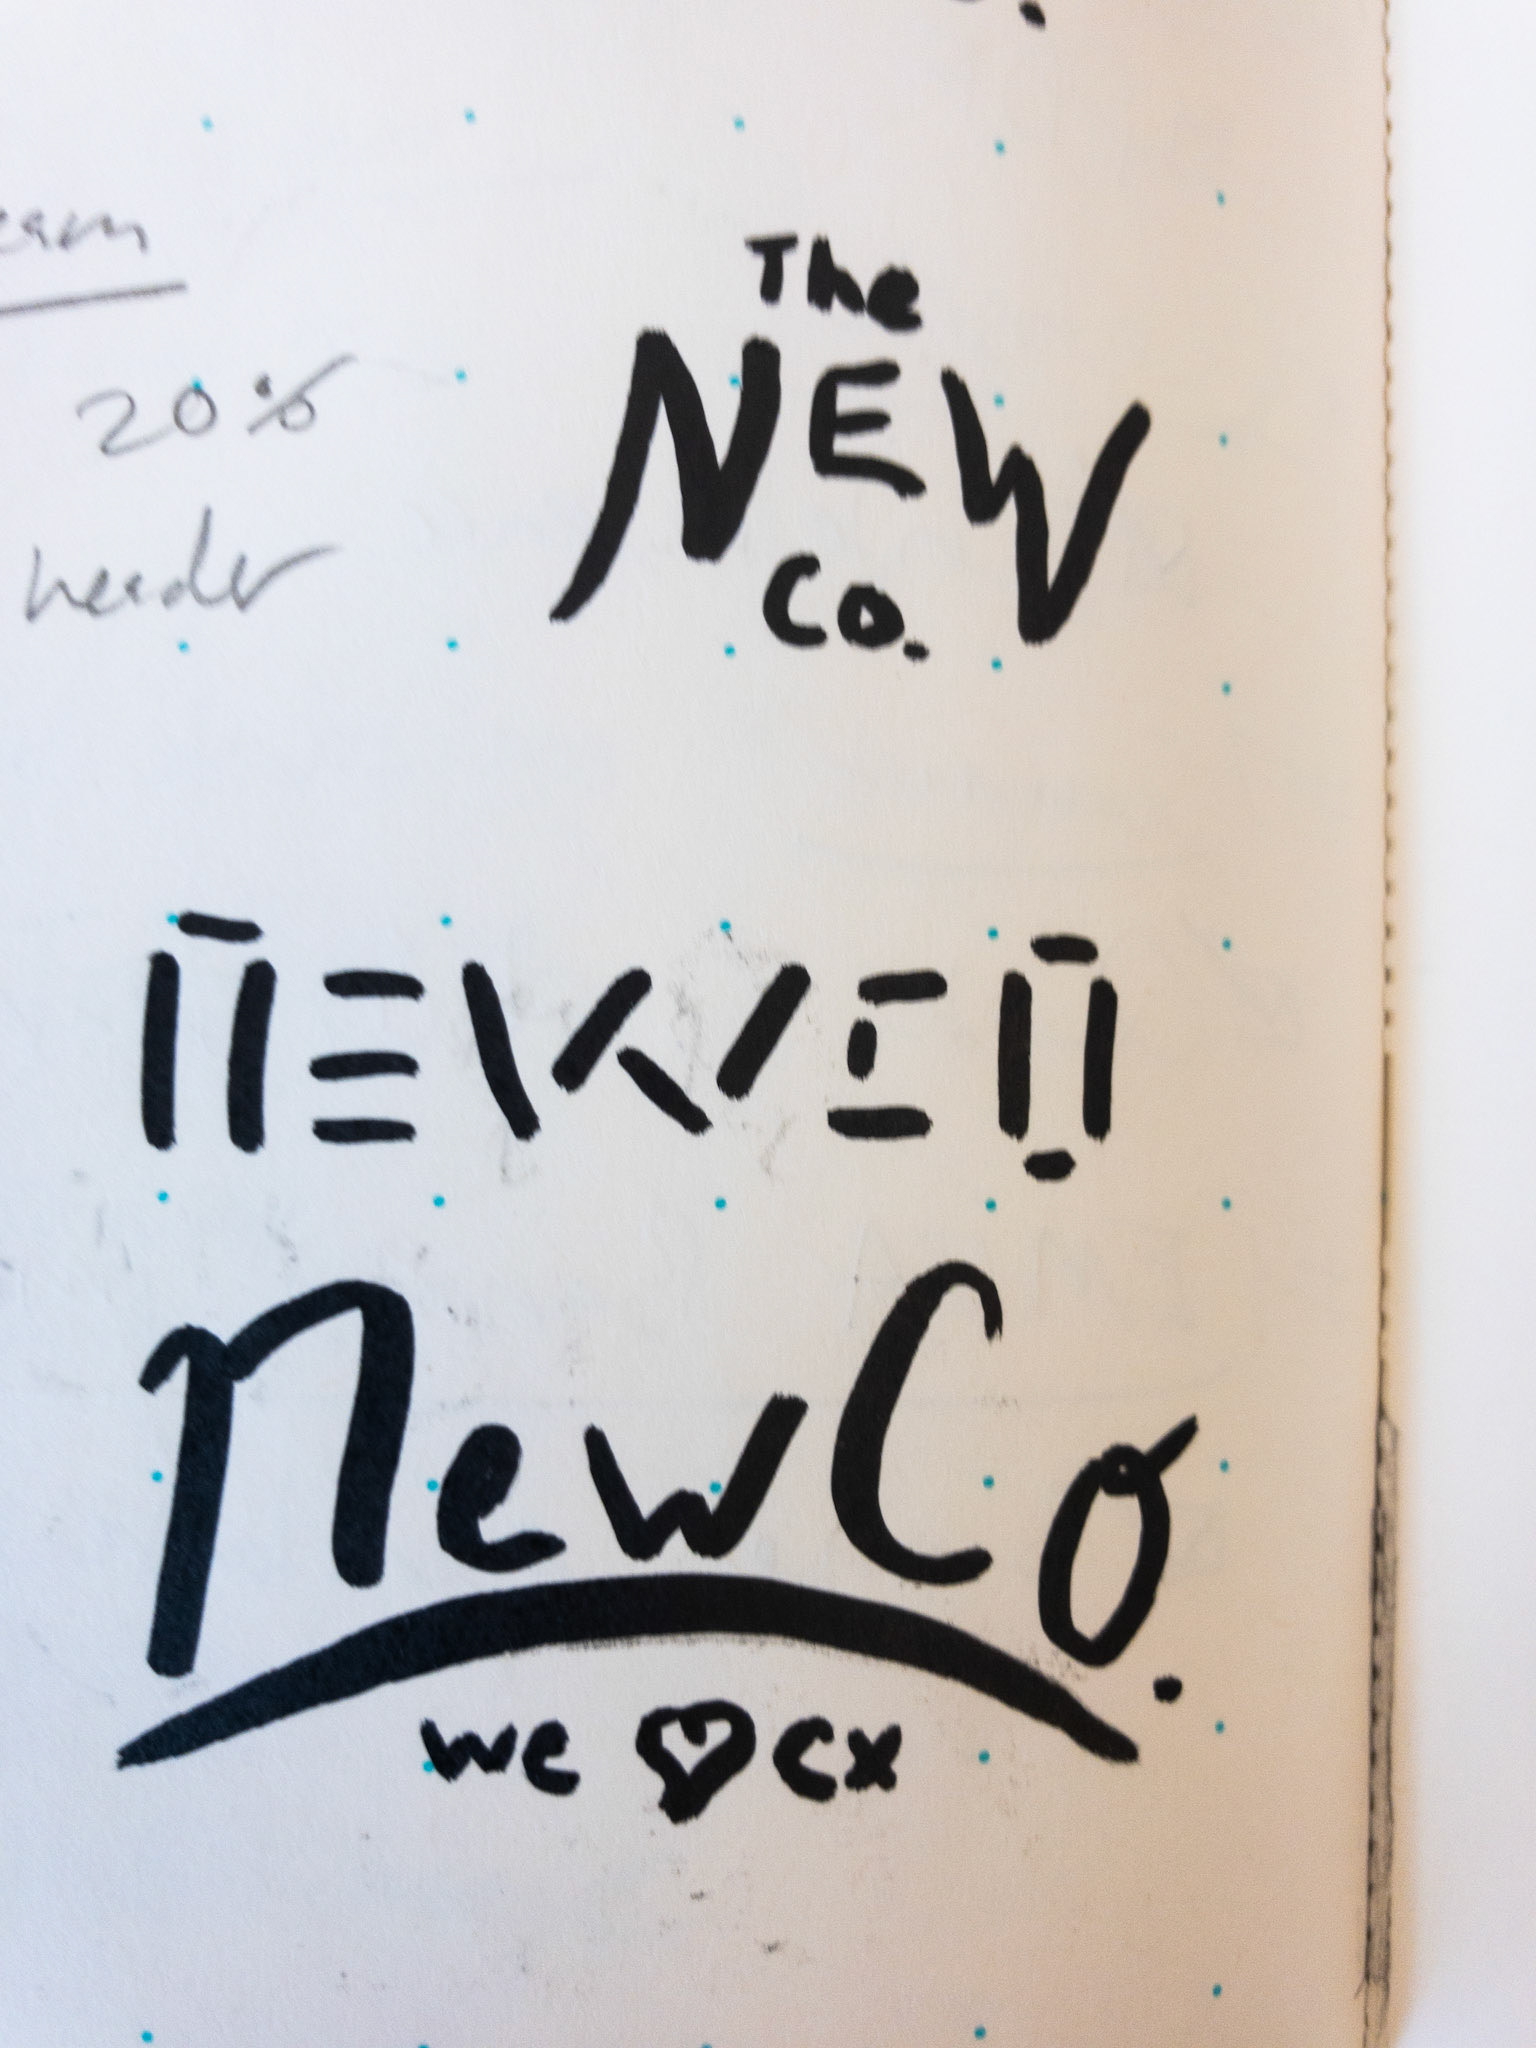 The
20%
NEW
header
Co.
NEWCO
NewCo.
we ♡ cx